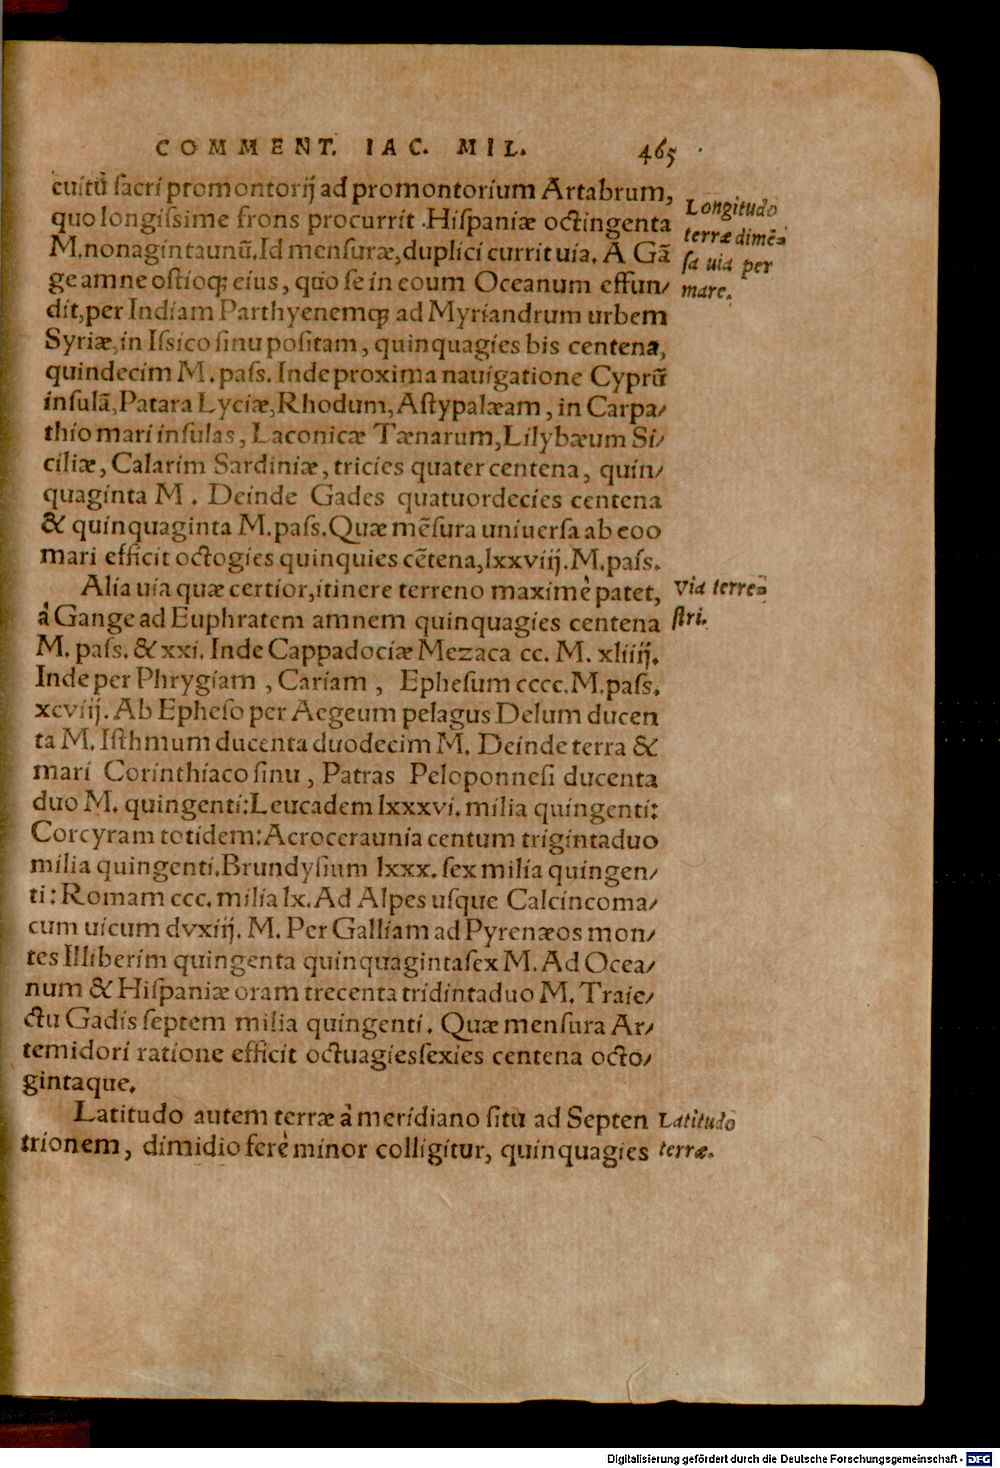 COMMENT. IAC. MIL. 465
cuitũ ſacri promontorij ad promontorium Artabrum,
quo longiſsime frons procurrit. Hiſpaniæ octingenta
M. nonagintaunũ. Id menſuræ, duplici currit uia. A Gã
ge amne oſtioq; eius, quo ſe in eoum Oceanum effun/
dit, per Indiam Parthyenemq; ad Myriandrum urbem
Syriæ, in Iſsico ſinu poſitam, quinquagies bis centena,
quindecim M. paſs. Inde proxima nauigatione Cyprũ
inſulã, Patara Lyciæ, Rhodum, Aſtypalæam, in Carpa/
thio mari inſulas, Laconicæ Tænarum, Lilybæum Si/
ciliæ, Calarim Sardiniæ, tricies quater centena, quin/
quaginta M. Deinde Gades quatuordecies centena
& quinquaginta M. paſs. Quæ mẽſura uniuerſa ab eoo
mari efficit octogies quinquies cẽtena, lxxviij. M. paſs.
Longitudo
terræ dimẽ=
ſa uia per
mare.
Alia uia quæ certior, itinere terreno maximè patet,
à Gange ad Euphratem amnem quinquagies centena
M. paſs. & xxi. Inde Cappadociæ Mezaca cc. M. xliiij.
Inde per Phrygiam, Cariam, Epheſum cccc. M. paſs.
xcviij. Ab Epheſo per Aegeum pelagus Delum ducen
ta M. Iſthmum ducenta duodecim M. Deinde terra &
mari Corinthiaco ſinu, Patras Peloponneſi ducenta
duo M. quingenti: Leucadem lxxxvi. milia quingenti:
Corcyram totidem: Acroceraunia centum trigintaduo
milia quingenti. Brundyſium lxxx. ſex milia quingen/
ti: Romam ccc. milia lx. Ad Alpes uſque Calcincoma/
cum uicum dvxiij. M. Per Galliam ad Pyrenæos mon/
tes Illiberim quingenta quinquagintaſex M. Ad Ocea/
num & Hiſpaniæ oram trecenta tridintaduo M. Traie/
ctu Gadis ſeptem milia quingenti. Quæ menſura Ar/
temidori ratione efficit octuagiesſexies centena octo/
gintaque.
Via terre=
ſtri.
Latitudo autem terræ à meridiano ſitu ad Septen
trionem, dimidio ferè minor colligitur, quinquagies
Latitudo
terræ.
Digitalisierung gefördert durch die Deutsche Forschungsgemeinschaft - DFG